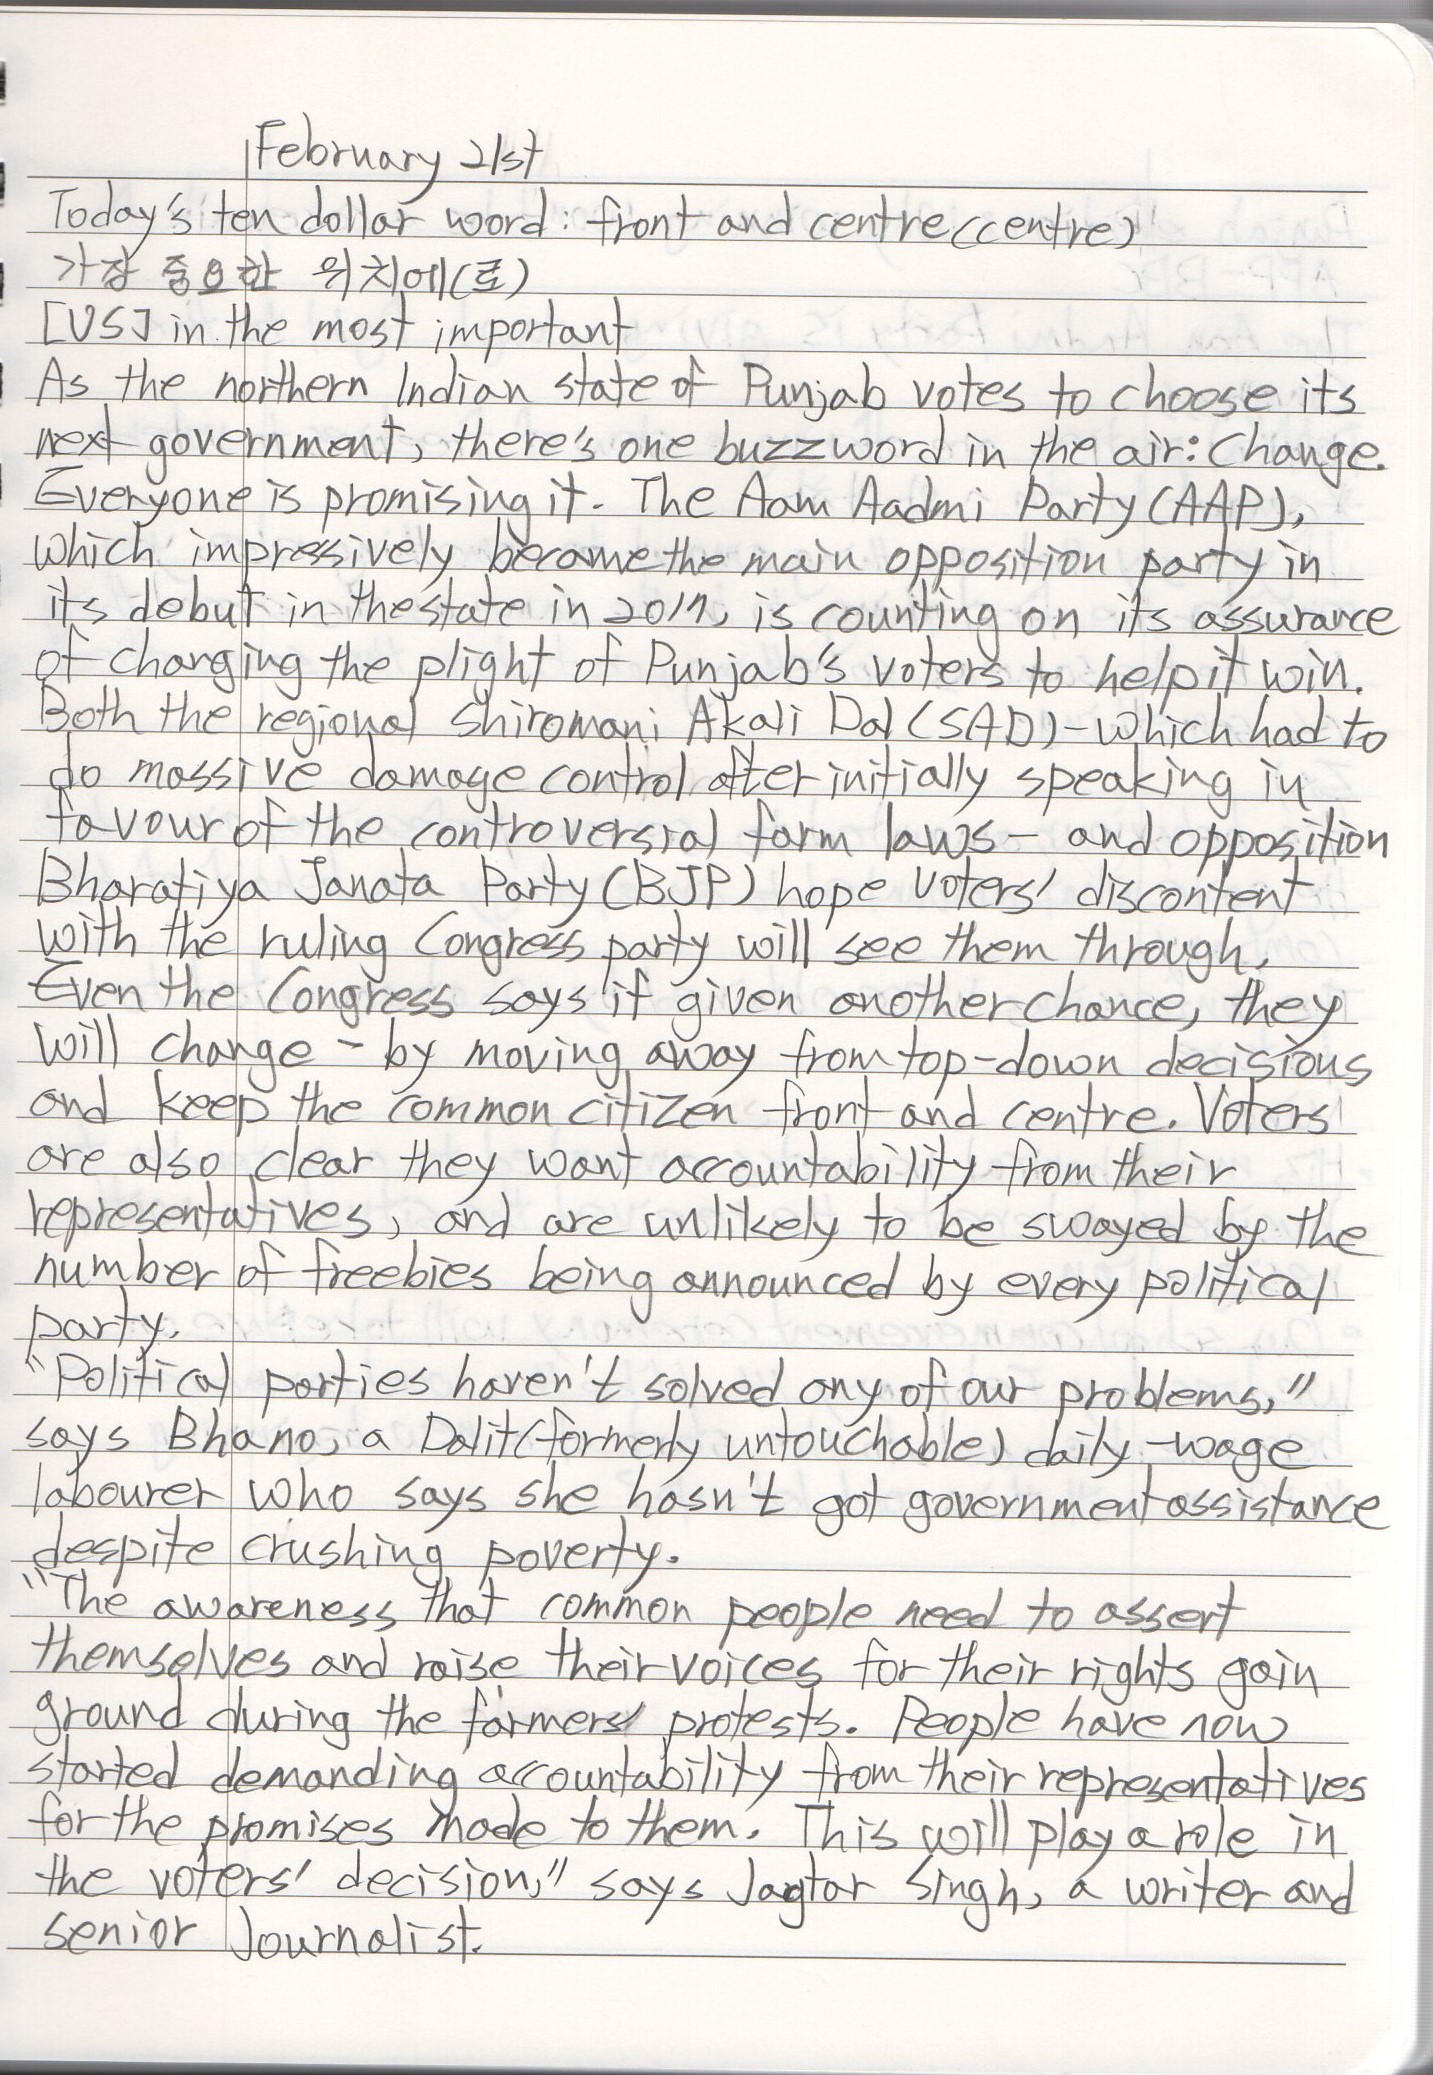 February 21st
Today's ten dollar word: front and centre(centre)
가장 중요한 위치에(로)
[US] in the most important
As the northern Indian state of Punjab votes to choose its
next government, there's one buzzword in the air: Change.
Everyone is promising it. The Aam Aadmi Party (AAP),
which impressively became the main opposition party in
its debut in the state in 2017, is counting on its assurance
of changing the plight of Punjab's voters to help it win.
Both the regional Shiromani Akali Dal (SAD) - which had to
do massive damage control after initially speaking in
favour of the controversial farm laws - and opposition
Bharatiya Janata Party (BJP) hope voters' discontent
with the ruling Congress party will see them through.
Even the Congress says if given another chance, they
will change - by moving away from top-down decisions
and keep the common citizen front and centre. Voters
are also clear they want accountability from their
representatives, and are unlikely to be swayed by the
number of freebies being announced by every political
party.
"Political parties haven't solved any of our problems,"
says Bhano, a Dalit (formerly untouchable) daily-wage
labourer who says she hasn't got government assistance
despite crushing poverty.
"The awareness that common people need to assert
themselves and raise their voices for their rights gain
ground during the farmers' protests. People have now
started demanding accountability from their representatives
for the promises made to them. This will play a role in
the voters' decision," says Jagtar Singh, a writer and
senior journalist.